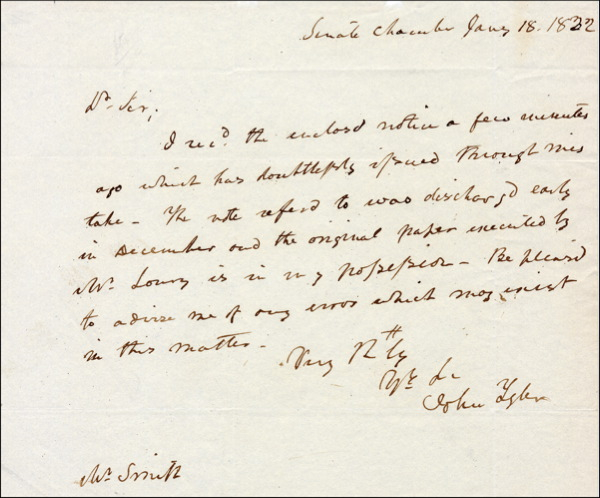 Senate Chamber Jany 18. 1832
Dr. Sir,
I rec'd the inclosd notice a few minutes
ago which has doubtlessly issued through mis
take - The note referd to was discharg'd early
in December and the original paper executed by
Mr. Lowry is in my possession - Be pleasd
to advise me of any error which may exist
in this matter -
Very R'th'ly
Yr. Se
John Tyler
Mr Smith